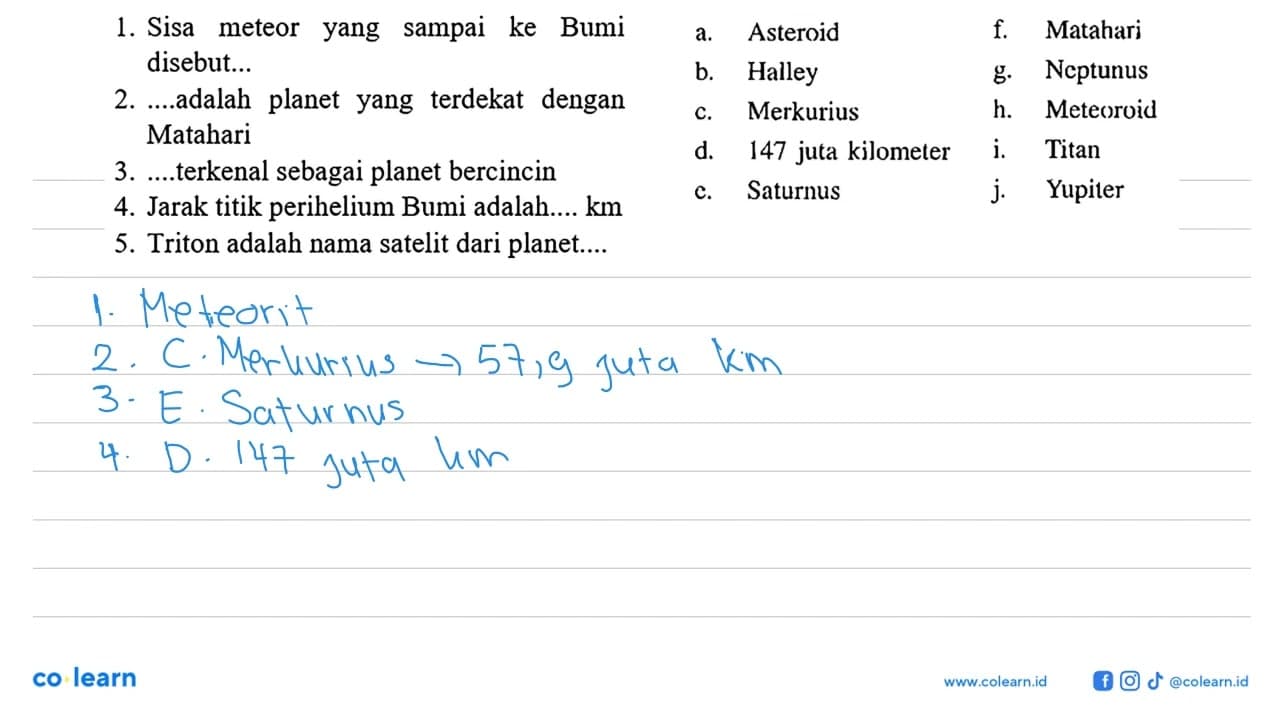 1. Sisa meteor yang sampai ke Bumi
disebut...
2. ....adalah planet yang terdekat dengan
Matahari
3. ....terkenal sebagai planet bercincin
4. Jarak titik perihelium Bumi adalah.... km
5. Triton adalah nama satelit dari planet....
a. Asteroid
b. Halley
c. Merkurius
d. 147 juta kilometer
e. Saturnus
f. Matahari
g. Neptunus
h. Meteoroid
i. Titan
j. Yupiter
1. Meteorit
2. C. Merkurius → 57,9 juta km
3. E. Saturnus
4. D. 147 juta km
co learn
www.colearn.id
@colearn.id